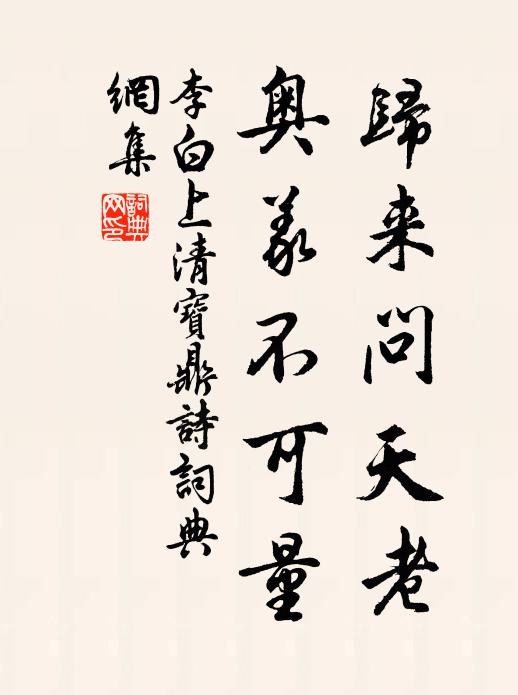 歸来問天老
奥義不可量
李白上清寶鼎詩詞典
網集
詞典網印